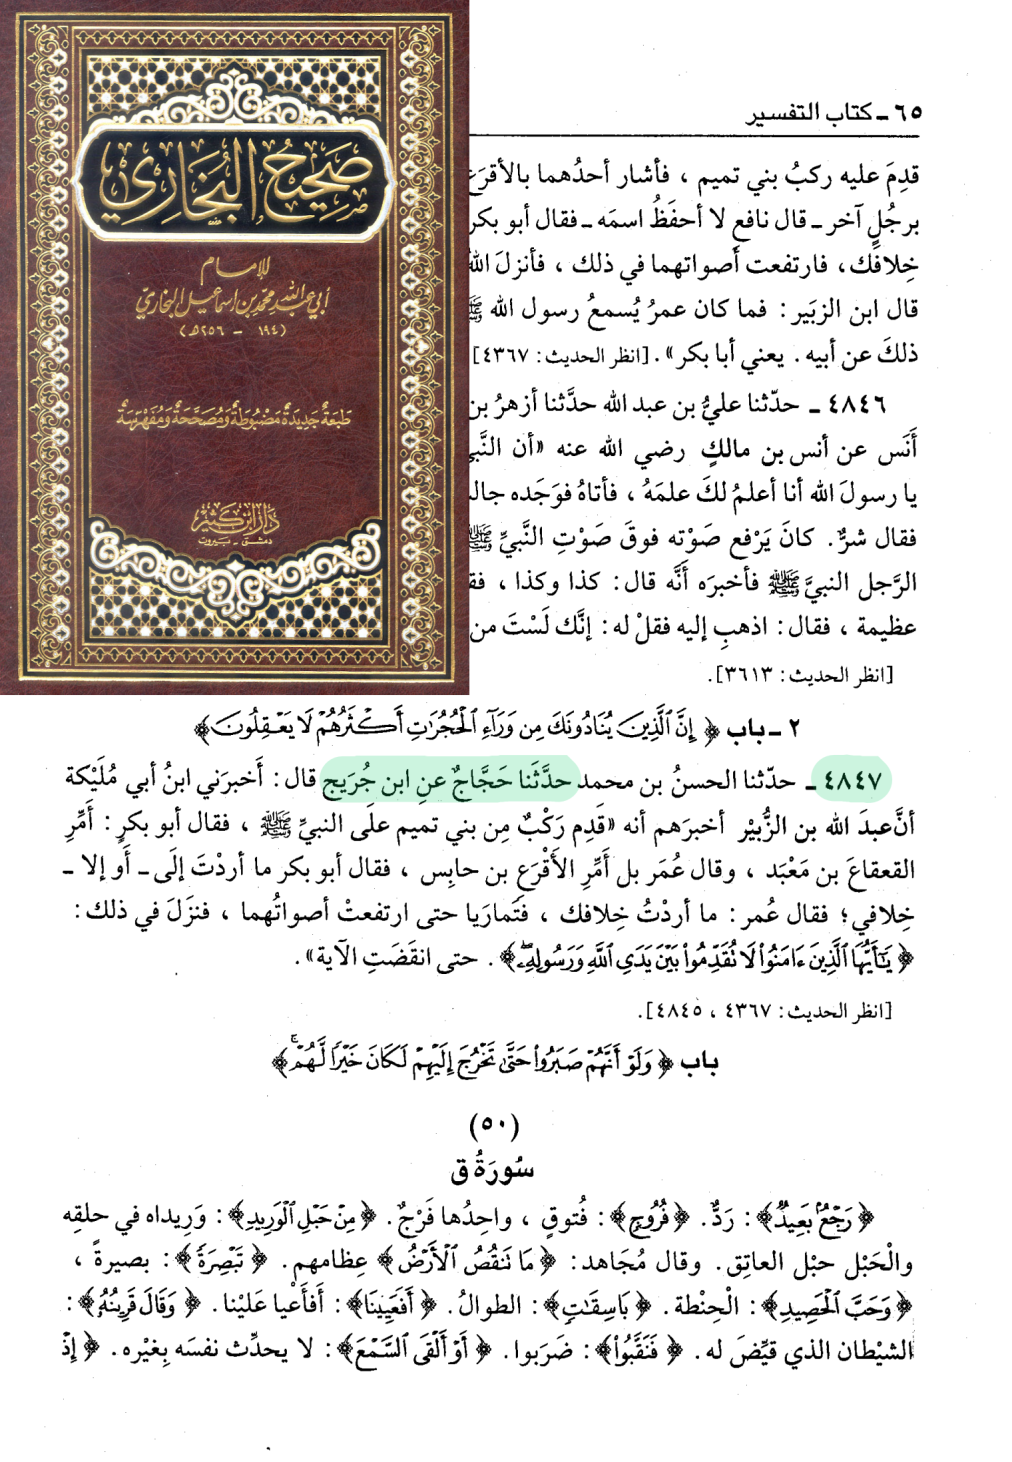 صَحِيحُ البُخَارِيِّ
للإمام
أبي عبد الله محمد بن إسماعيل البخاري
(١٩٤ - ٢٥٦هـ)
طَبعَةٌ جَديدَةٌ مَضْبُوطَةٌ وَمُصَحَّحَةٌ وَمُفَهْرَسَةٌ
دار ابن كثير
دمشق - بيروت
٦٥ ـ كتاب التفسير
قدِمَ عليه ركبُ بني تميم ، فأشار أحدُهما بالأقرَع
برجُلٍ آخر ـ قال نافع لا أحفَظُ اسمَه ـ فقال أبو بكر
خِلافَك، فارتفعت أصواتهما في ذلك ، فأنزلَ الله
قال ابن الزبَير: فما كان عمرُ يُسمعُ رسول الله ﷺ
ذلكَ عن أبيه. يعني أبا بكر». [انظر الحديث: ٤٣٦٧]
٤٨٤٦ ـ حدّثنا عليُّ بن عبد الله حدَّثنا أزهرُ بن
أَنَس عن أنس بن مالكٍ رضي الله عنه «أن النَّبي
يا رسولَ الله أنا أعلمُ لكَ علمَهُ ، فأتاهُ فوَجَده جال
فقال شرٌّ. كانَ يَرْفع صَوْته فوقَ صَوْتِ النَّبيِّ ﷺ
الرَّجل النبيَّ ﷺ فأخبرَه أنَّه قال: كذا وكذا ، فق
عظيمة ، فقال: اذهبِ إليه فقلْ له: إنَّك لَسْتَ من
[انظر الحديث: ٣٦١٣].
٢ ـ باب ﴿إِنَّ ٱلَّذِينَ يُنَادُونَكَ مِن وَرَآءِ ٱلْحُجُرَٰتِ أَكْثَرُهُمْ لَا يَعْقِلُونَ﴾
٤٨٤٧ ـ حدّثنا الحسنُ بن محمد حدَّثَنا حَجَّاجٌ عنِ ابن جُرَيج قال: أَخبرَني ابنُ أبي مُلَيْكة
أنَّ عبدَ الله بن الزُّبيْر أخبرَهم أنه «قَدِم رَكْبٌ مِن بني تميم علَى النبيِّ ﷺ ، فقال أبو بكرٍ: أَمِّرِ
القعقاعَ بن مَعْبَد ، وقال عُمَر بل أَمِّرِ الأَقْرَعِ بن حابِس ، فقال أبو بكر ما أردْتَ إلَى ـ أَو إلا ـ
خِلافي؛ فقال عُمر: ما أردْتُ خِلافك ، فتَمارَيا حتى ارتفعتْ أصواتُهما ، فنزَلَ في ذلك:
﴿يَٰٓأَيُّهَا ٱلَّذِينَ ءَامَنُوا۟ لَا تُقَدِّمُوا۟ بَيْنَ يَدَىِ ٱللَّهِ وَرَسُولِهِۦ﴾. حتى انقَضَتِ الآية».
[انظر الحديث: ٤٣٦٧ ، ٤٨٤٥].
باب ﴿وَلَوْ أَنَّهُمْ صَبَرُوا۟ حَتَّىٰ تَخْرُجَ إِلَيْهِمْ لَكَانَ خَيْرًا لَّهُمْ﴾
(٥٠)
سُورَةُ ق
﴿رَجْعٌۢ بَعِيدٌ﴾: رَدٌّ. ﴿فُرُوجٍ﴾: فُتوقٍ ، واحِدُها فَرْجٌ. ﴿مِنْ حَبْلِ ٱلْوَرِيدِ﴾: وَرِيداه في حلقِه
والْحَبْل حبْل العاتِق. وقال مُجَاهد: ﴿مَا تَنقُصُ ٱلْأَرْضُ﴾ عِظامهم. ﴿تَبْصِرَةً﴾: بصيرةً ،
﴿وَحَبَّ ٱلْحَصِيدِ﴾: الْحِنْطة. ﴿بَاسِقَٰتٍ﴾: الطوالُ. ﴿أَفَعَيِينَا﴾: أَفأَعْيا عَليْنا. ﴿وَقَالَ قَرِينُهُۥ﴾:
الشيْطان الذي قيِّضَ له. ﴿فَنَقَّبُوا۟﴾: ضَرَبوا. ﴿أَوْ أَلْقَى ٱلسَّمْعَ﴾: لا يحدِّث نفسَه بِغيْره. ﴿إِذْ